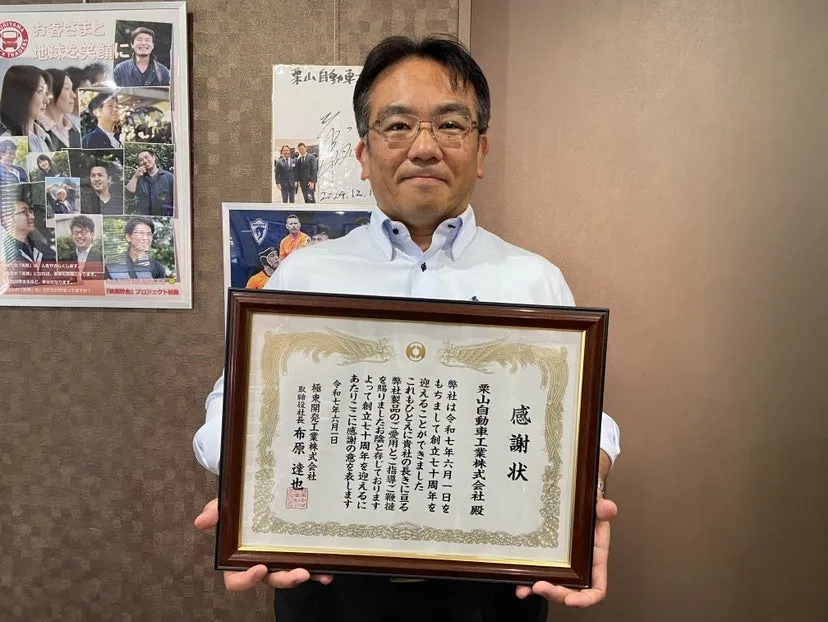 お客さまと
地球を笑顔に
『笑顔貯金』プロジェクト始動
栗山自動車
2024.12.
感謝状
栗山自動車工業株式会社 殿
弊社は令和七年六月一日を
もちまして創立七十周年を
迎えることができました
これもひとえに貴社の長きに亘る
弊社製品のご愛用とご指導ご鞭撻
を賜りましたお陰と存じております
よって創立七十周年を迎えるに
あたりここに感謝の意を表します
令和七年六月一日
極東開発工業株式会社
取締役社長 布原 達也